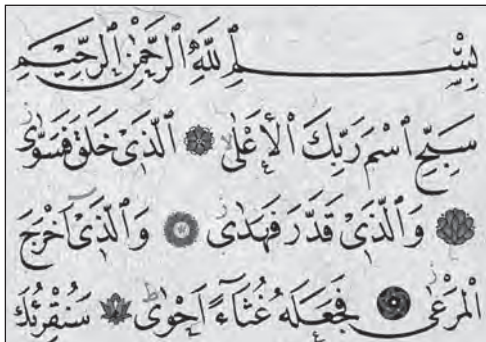 بِسْمِ اللّٰهِ الرَّحْمٰنِ الرَّحِيمِ
سَبِّحِ اسْمَ رَبِّكَ الْأَعْلٰى ۝ الَّذِى خَلَقَ فَسَوّٰى
۝ وَالَّذِى قَدَّرَ فَهَدٰى ۝ وَالَّذِىٓ اَخْرَجَ
الْمَرْعٰى ۝ فَجَعَلَهُ غُثَاۤءً اَحْوٰى ۝ سَنُقْرِئُكَ